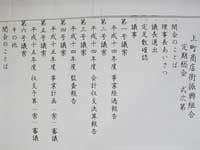 上町商店街振興組合
定期総会　式次第
開会のことば
理事長あいさつ
議長選出
定足数確認
議事
第一号議案
平成十四年度　事業経過報告
第二号議案
平成十四年度　会計収支決算報告
平成十四年度　監査報告
第四号議案
平成十五年度　事業計画（案）審議
第五号議案
平成十五年度　収支予算（案）審議
第六号議案
その他
閉会のことば